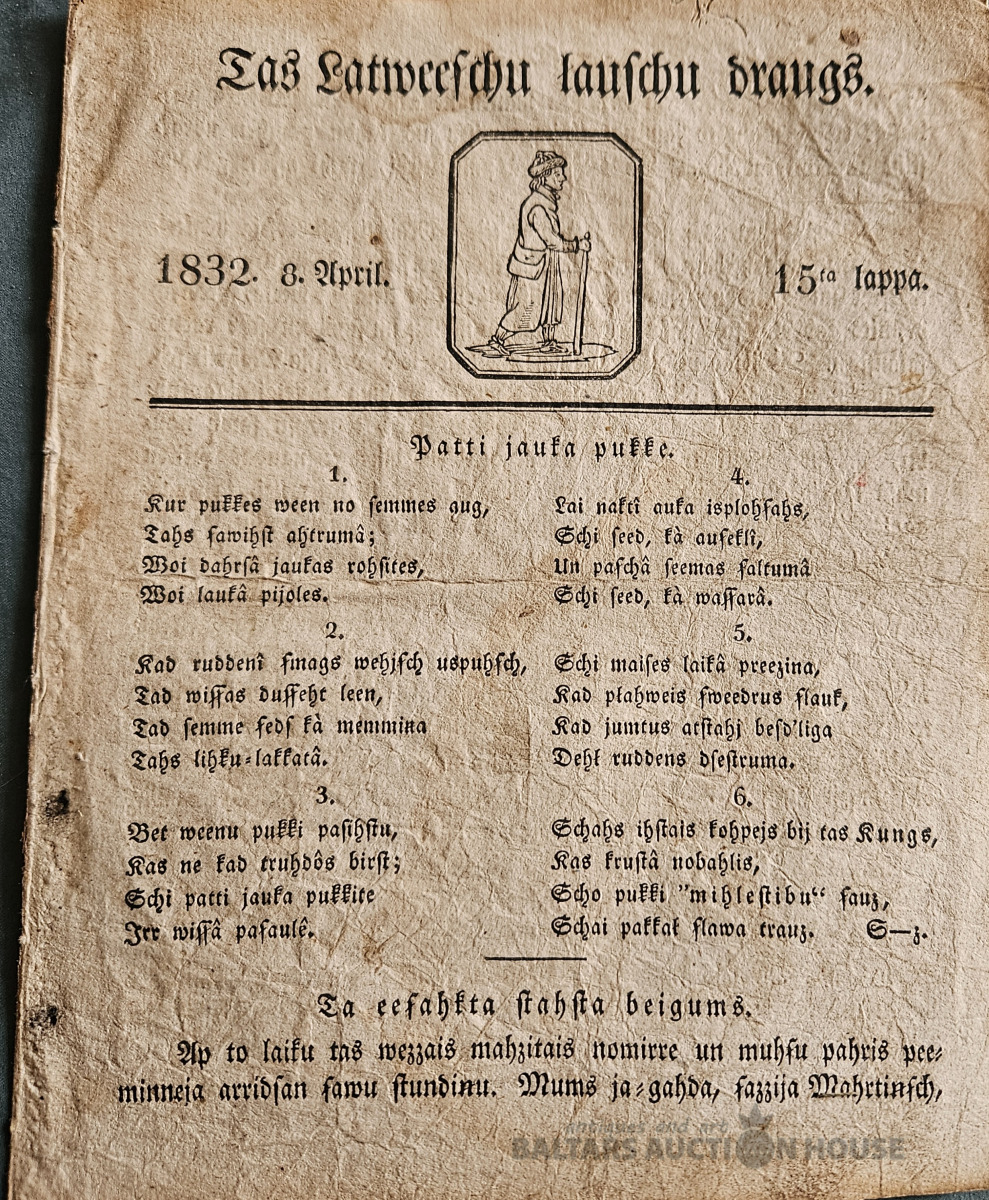 Tas Latweeschu lauschu draugs.
1832. 8. April.
15ta lappa.
Patti jauka pukke.
1.
Kur pukkes ween no semmes aug,
Tahs sawihst ahtrumâ;
Woi dahrsâ jaukas rohsites,
Woi laukâ pijoles.
2.
Kad ruddenî smags wehjsch uspuhsch,
Tad wissas dusseht leen,
Tad semme seds kà memmina
Tahs lihku-lakkatâ.
3.
Bet weenu pukki pasihstu,
Kas ne kad truhdôs birst;
Schi patti jauka pukkite
Irr wissâ pasaulê.
4.
Lai naktî auka isplohsahs,
Schi seed, kà auseklî,
Un paschâ seemas saltumâ
Schi seed, kà wassarâ.
5.
Schi maises laikâ preezina,
Kad płahweis sweedrus slauk,
Kad jumtus atstahj besd'liga
Dehł ruddens dsestruma.
6.
Schahs ihstais kohpejs bij tas Kungs,
Kas krustâ nobahlis,
Scho pukki "mihlestibu“ sauz,
Schai pakkał slawa trauz. S—z.
Ta eesahkta stahsta beigums.
Ap to laiku tas wezzais mahzitais nomirre un muhsu pahris pee-
minneja arridsan sawu stundinu. Mums ja-gahda, sazzija Mahrtinsch,
antiques and art
BALTARS AUCTION HOUSE